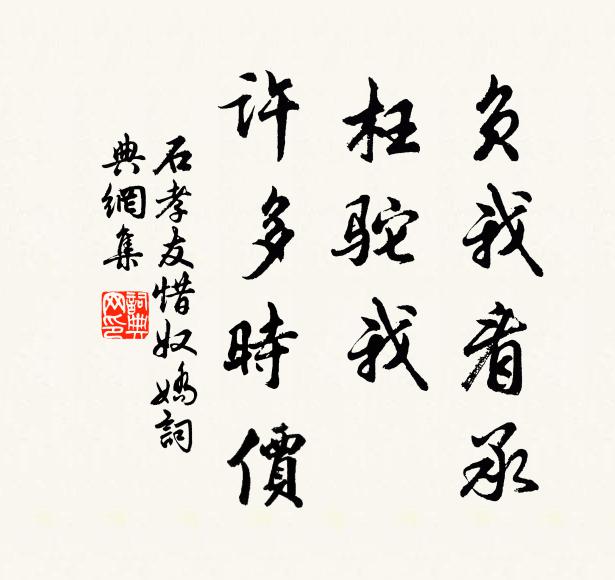 负我看承
枉驼我
許多時價
石孝友惜奴嬌詞
典網集
詞典
网印